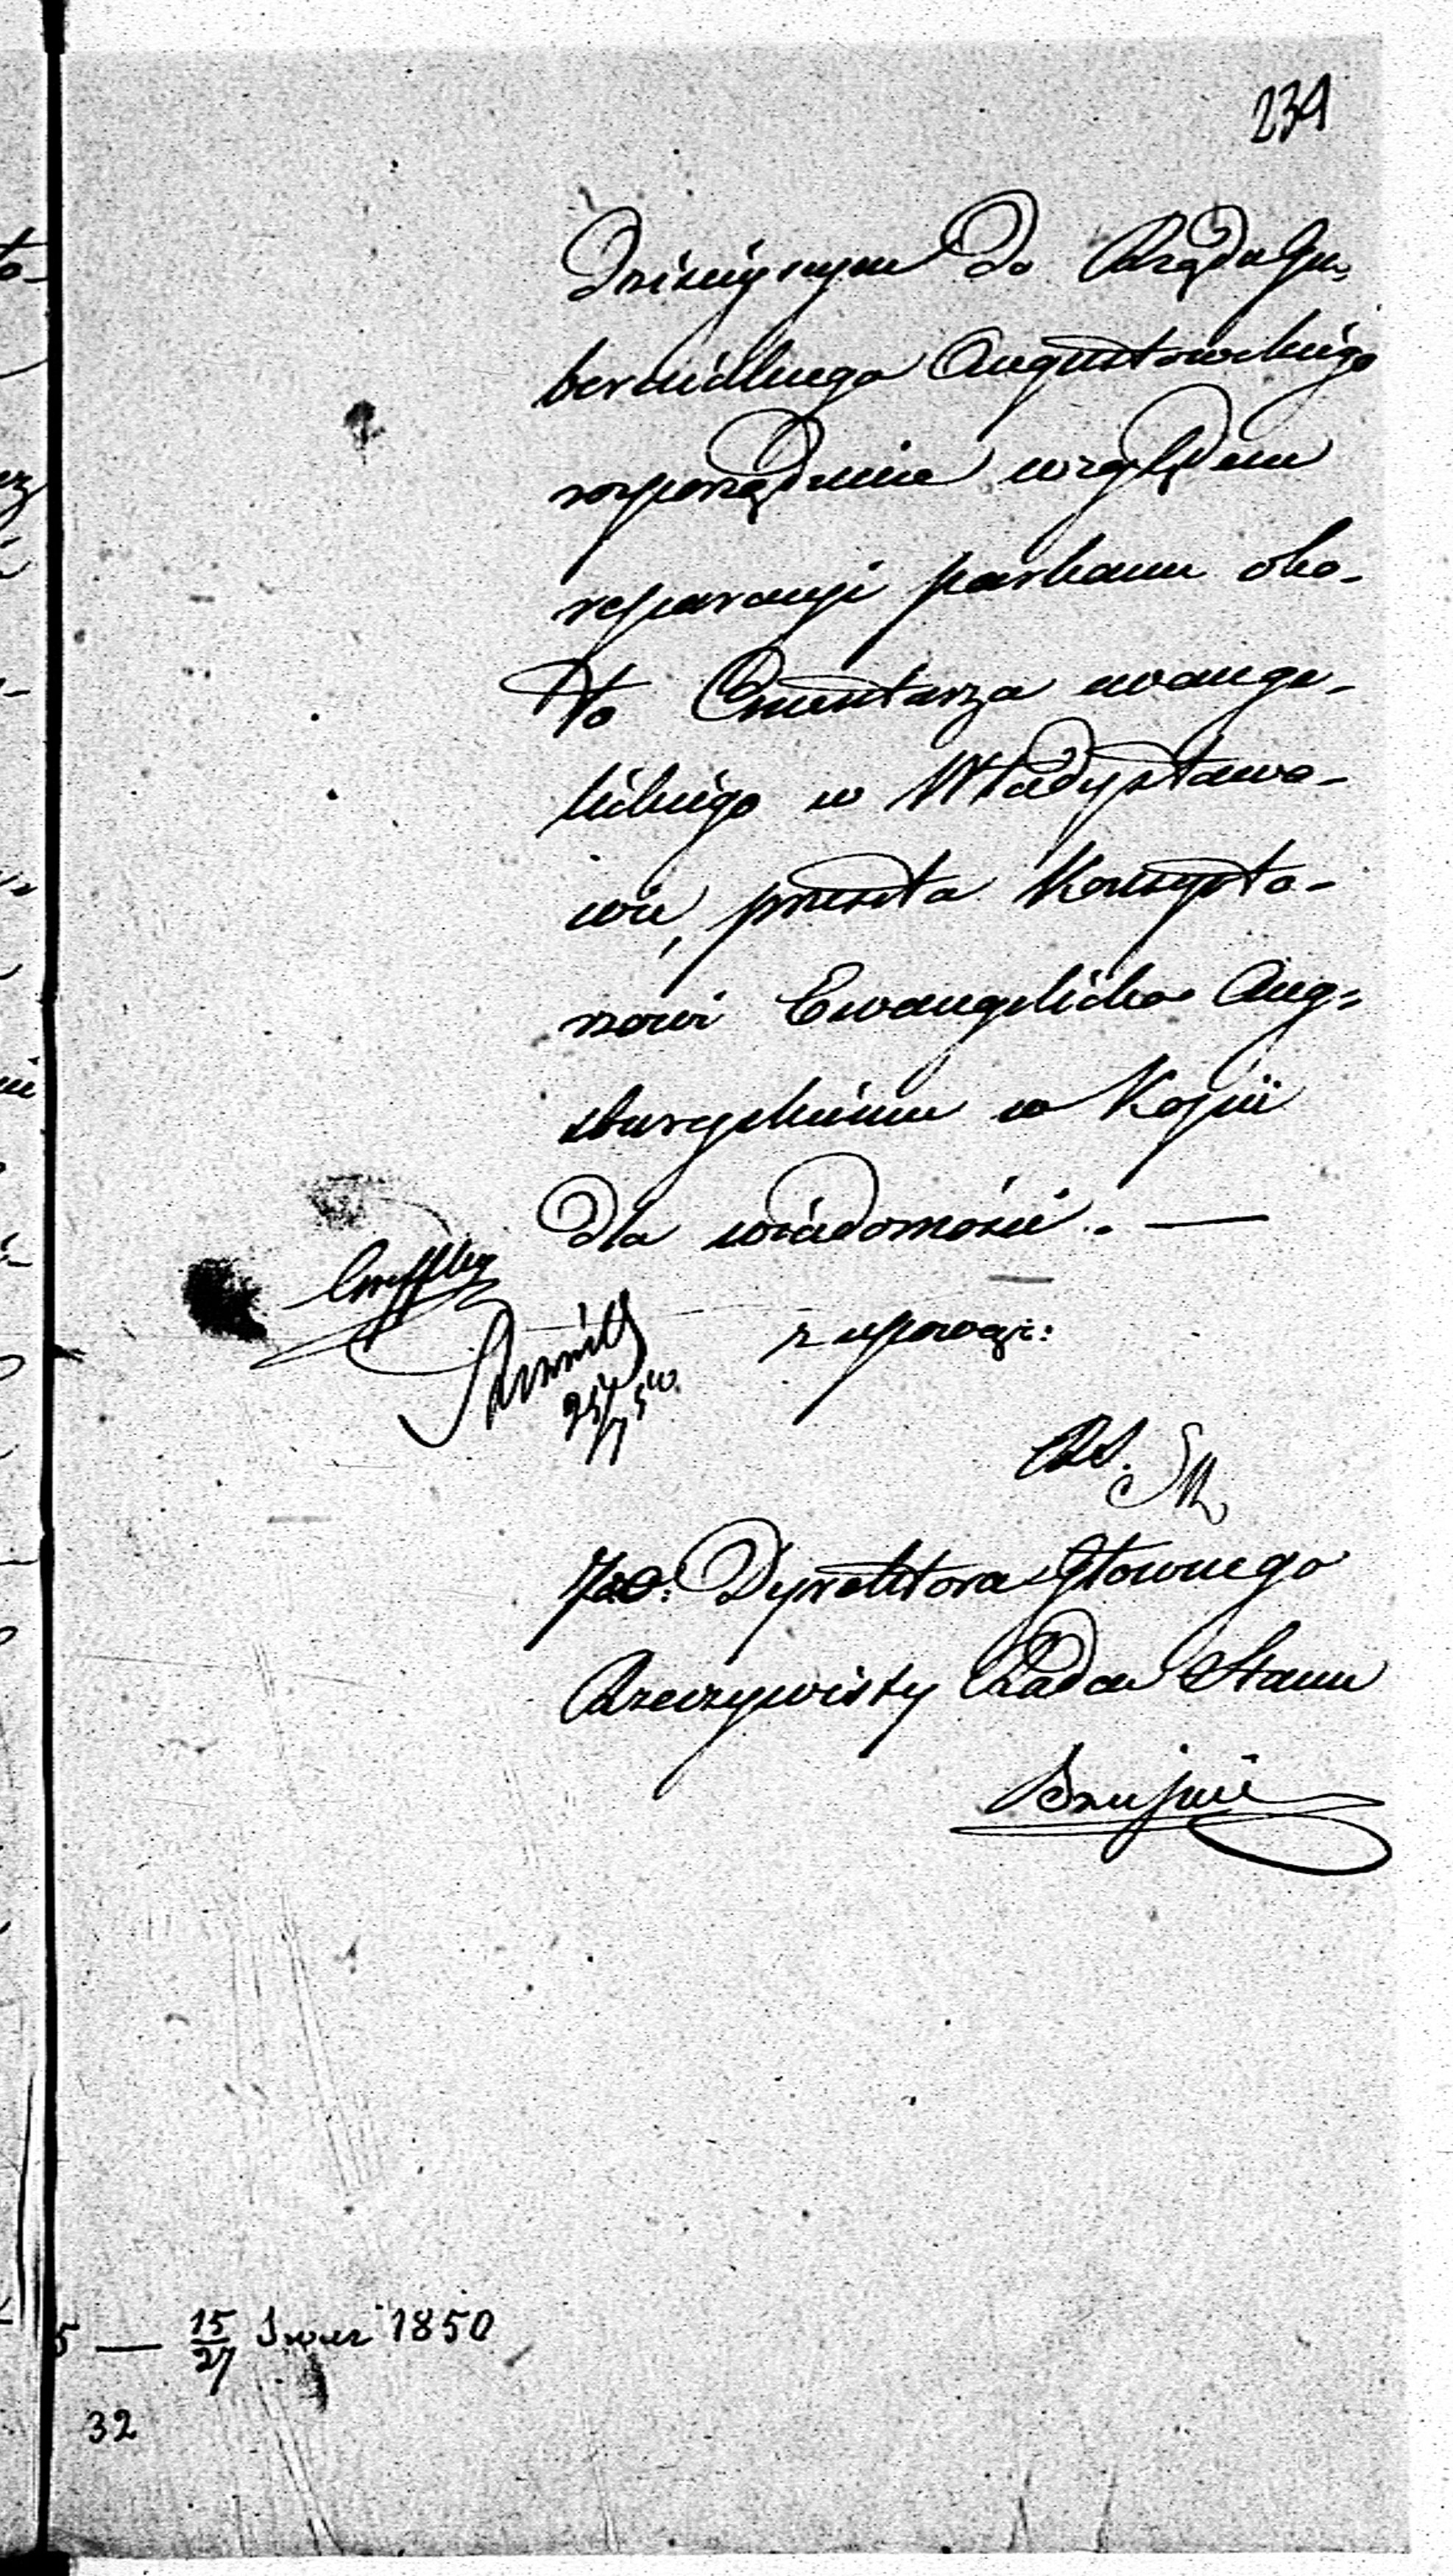 239
Dzisiejszym do Rządu Gu=
bernialnego Augustowskiego
rozporządzenie względem
reparacyi parkanu oko-
ło Cmentarza ewange-
lickiego w Władysławo-
wie, przesła Konsysto-
rzowi Ewangelicko Aug=
sburgskiemu w Kopii
dla wiadomości. —
z upoważ:
RS.
po: Dyrektora Głownego
Rzeczywisty Radca Stanu
5 — 15/27 1850
32